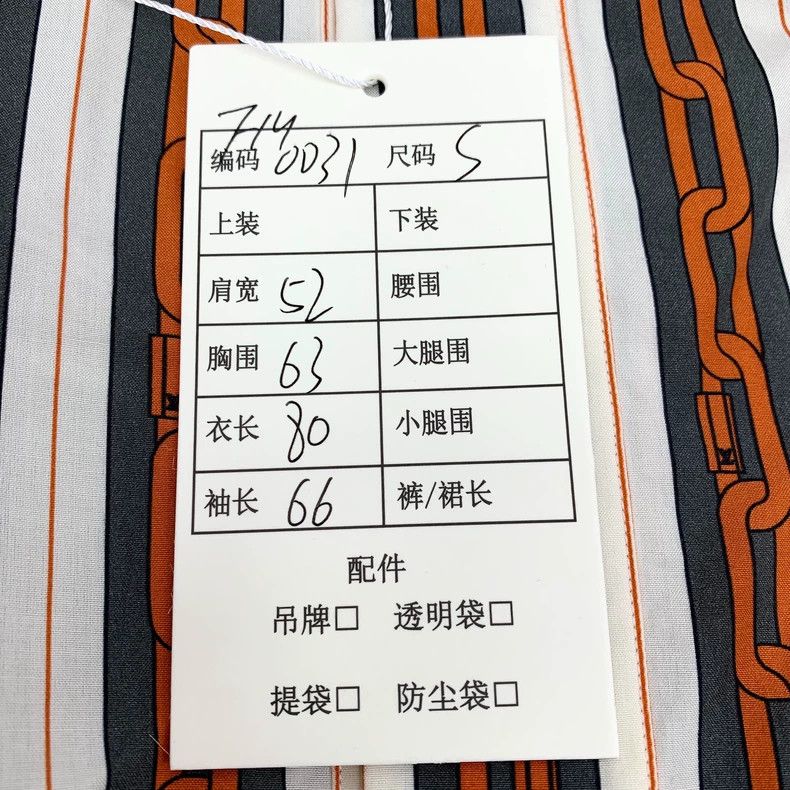 714
编码 0031 尺码 S
上装 下装
肩宽 52 腰围
胸围 63 大腿围
衣长 80 小腿围
袖长 66 裤/裙长
配件
吊牌□ 透明袋□
提袋□ 防尘袋□